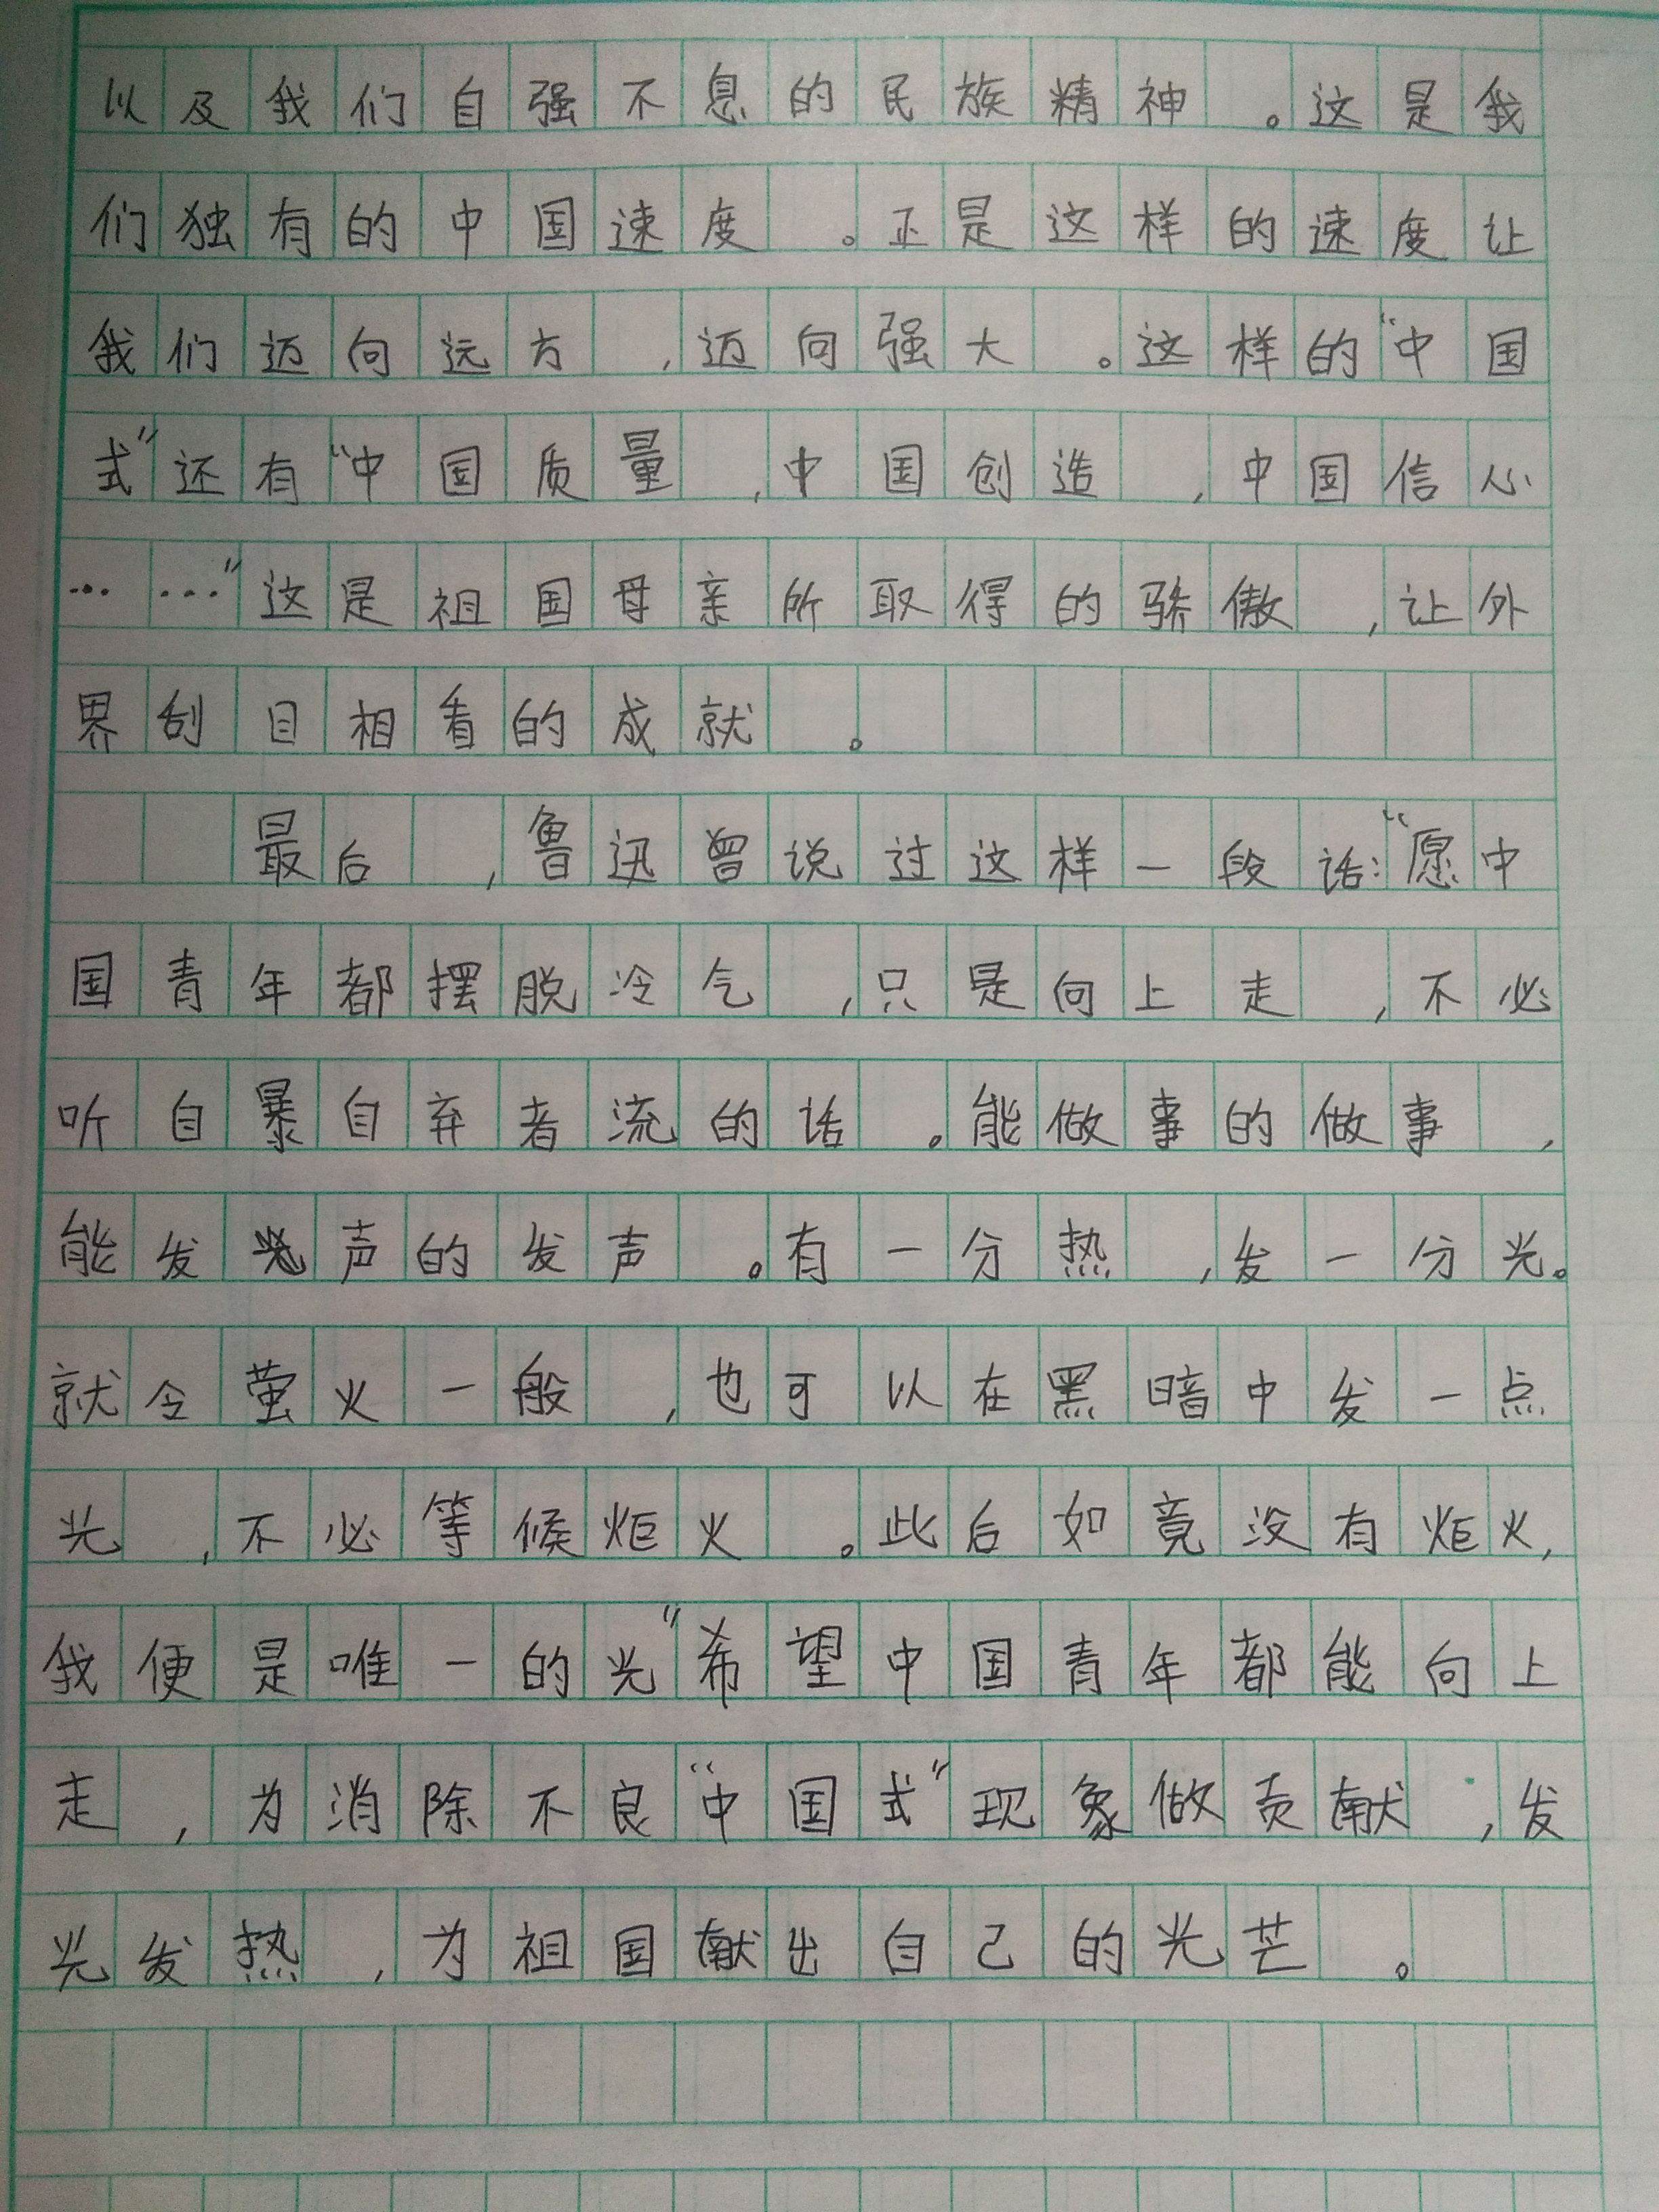 以及我们自强不息的民族精神。这是我
们独有的中国速度。正是这样的速度让
我们迈向远方,迈向强大。这样的“中国
式”还有“中国质量,中国创造,中国信心
……”这是祖国母亲所取得的骄傲,让外
界刮目相看的成就。
最后,鲁迅曾说过这样一段话:“愿中
国青年都摆脱冷气,只是向上走,不必
听自暴自弃者流的话。能做事的做事,
能发声的发声。有一分热,发一分光。
就令萤火一般,也可以在黑暗中发一点
光,不必等候炬火。此后如竟没有炬火,
我便是唯一的光”希望中国青年都能向上
走,为消除不良“中国式”现象做贡献,发
光发热,为祖国献出自己的光芒。